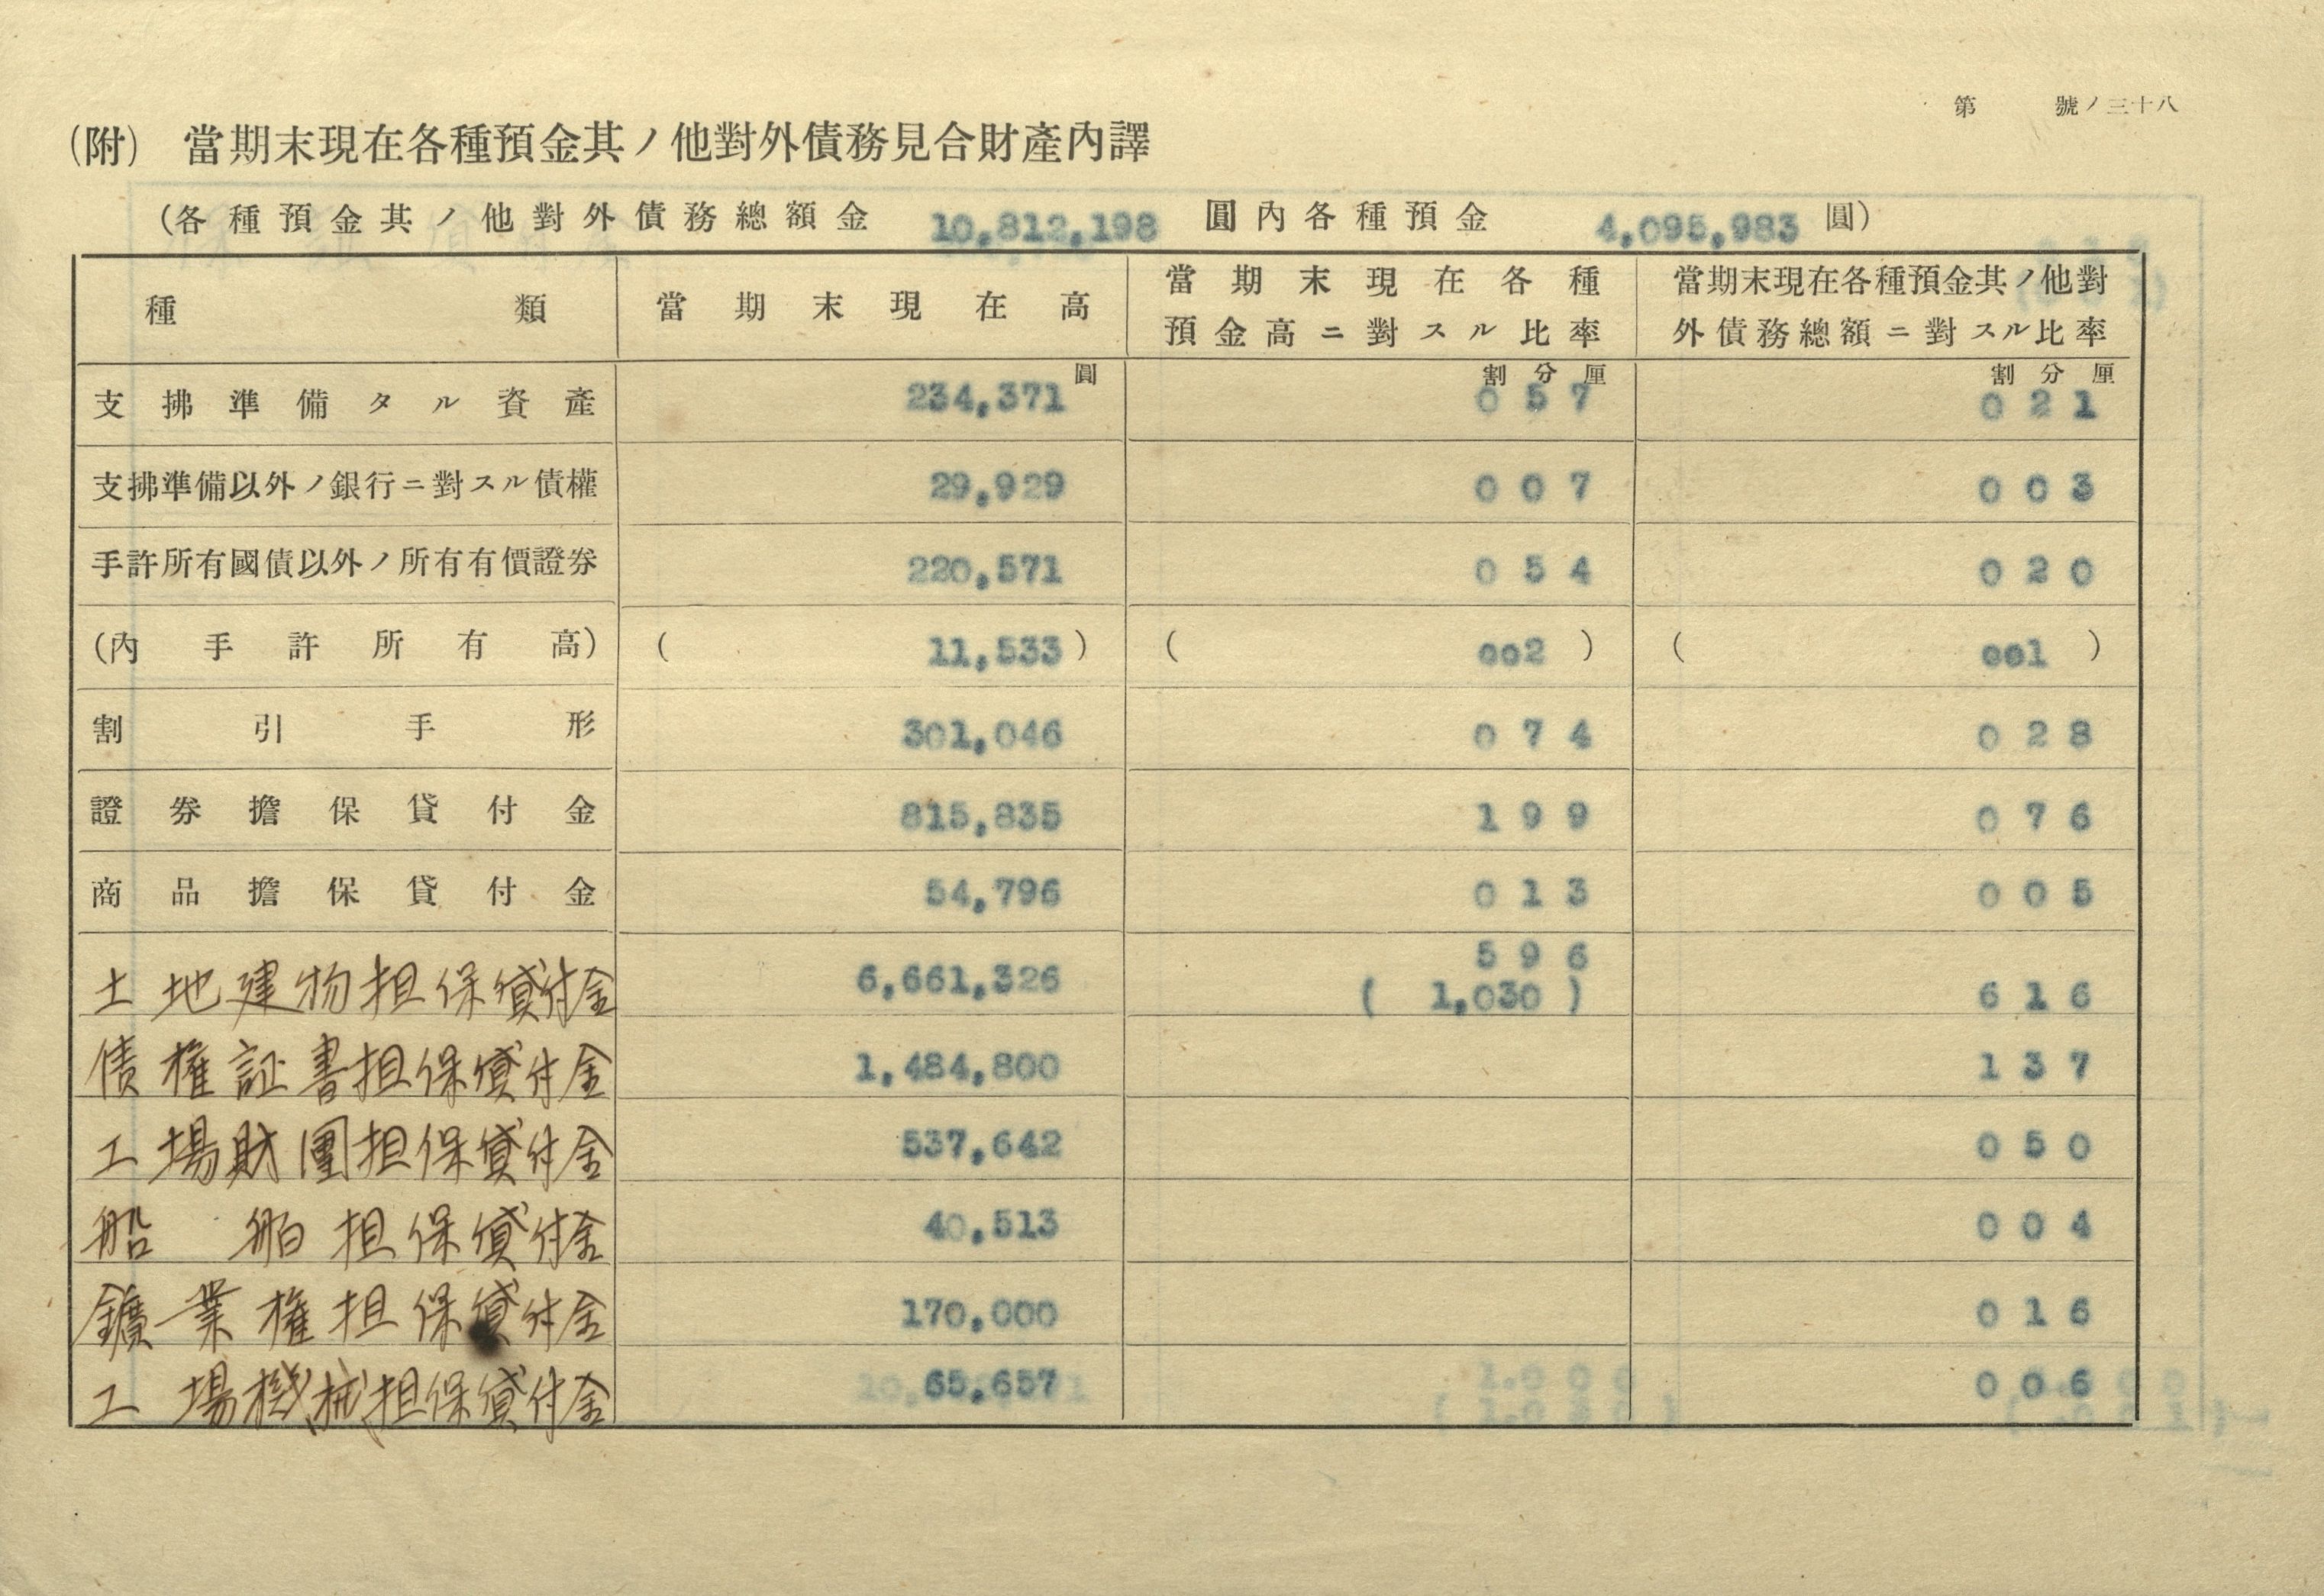 第 號ノ三十八
(附) 當期末現在各種預金其ノ他對外債務見合財產內譯
(各種預金其ノ他對外債務總額金 10,812,198 圓內各種預金 4,095,983 圓)
種類 當期末現在高 當期末現在各種預金高ニ對スル比率 當期末現在各種預金其ノ他對外債務總額ニ對スル比率
圓 割分厘 割分厘
支拂準備タル資產 234,371 0 5 7 0 2 1
支拂準備以外ノ銀行ニ對スル債權 29,929 0 0 7 0 0 3
手許所有國債以外ノ所有有價證券 220,571 0 5 4 0 2 0
(內手許所有高) ( 11,533 ) ( 002 ) ( 001 )
割引手形 301,046 0 7 4 0 2 8
證券擔保貸付金 815,835 1 9 9 0 7 6
商品擔保貸付金 54,796 0 1 3 0 0 5
土地建物担保貸付金 6,661,326 5 9 6 ( 1,030 ) 6 1 6
債権証書担保貸付金 1,484,800 1 3 7
工場財團担保貸付金 537,642 0 5 0
船舶担保貸付金 40,513 0 0 4
鑛業権担保貸付金 170,000 0 1 6
工場機械担保貸付金 65,657 0 0 6